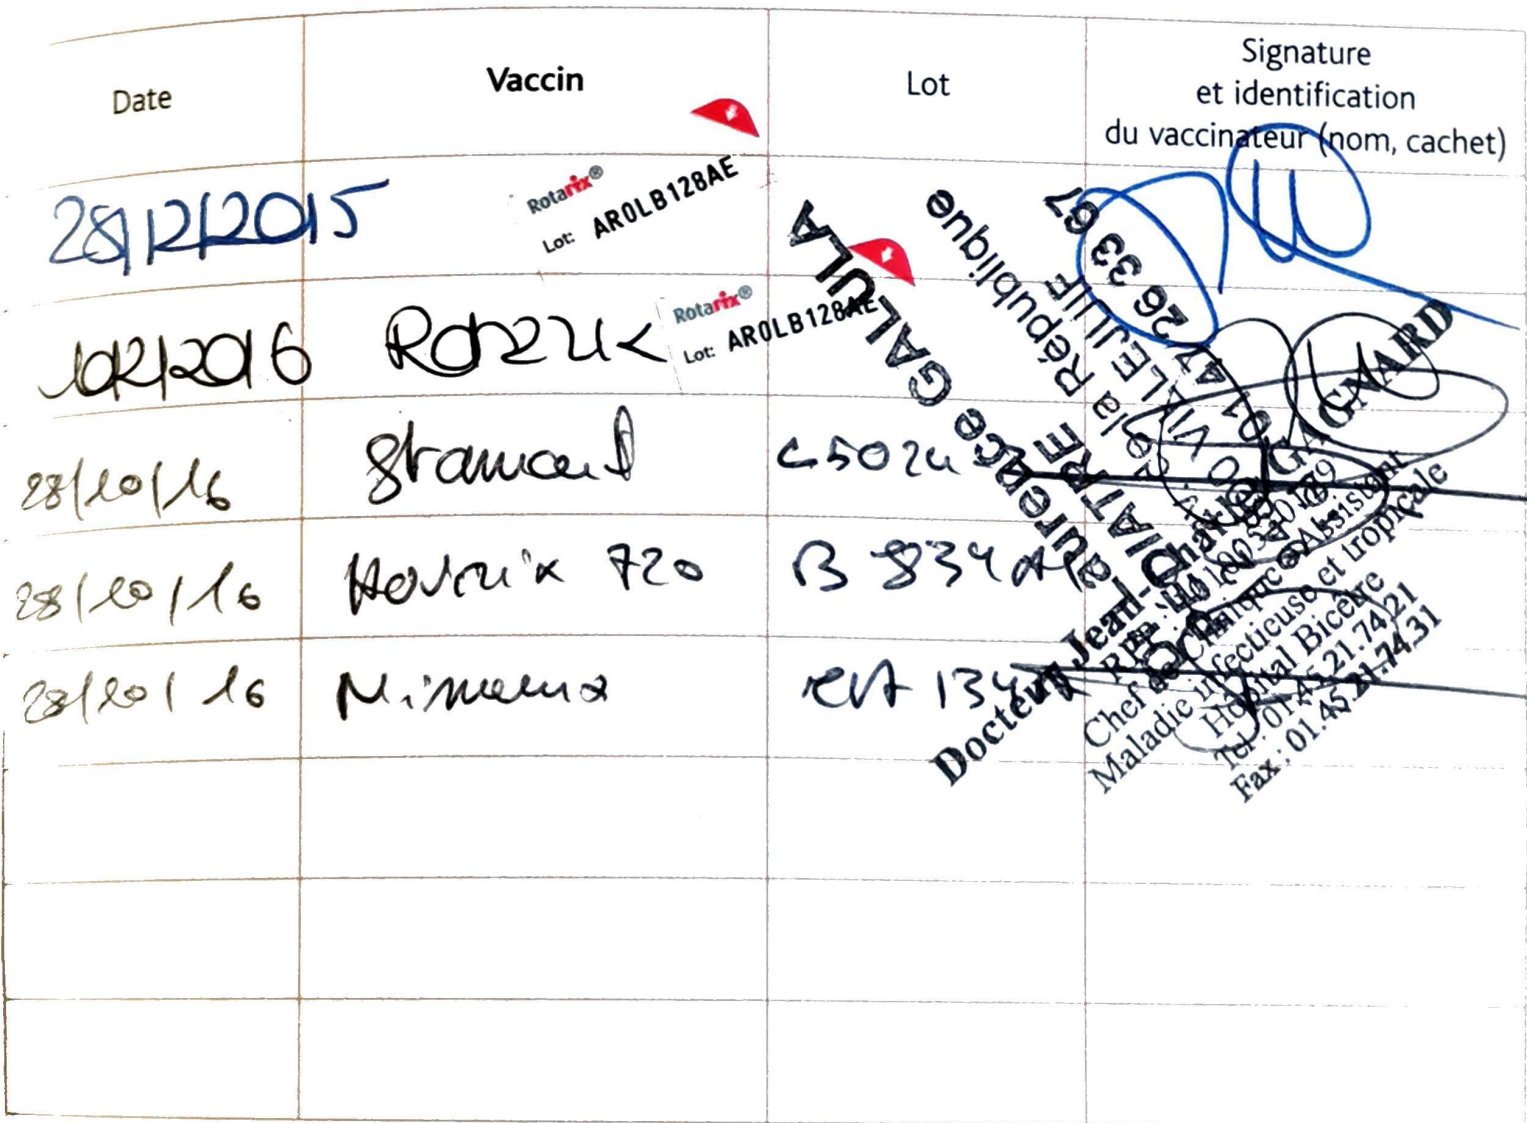 Date Vaccin Lot Signature
et identification
du vaccinateur (nom, cachet)
28/12/2015 Rotarix® Lot: AROLB128AE
10/2/2016 Rotarix Rotarix® Lot: AROLB128AE
28/10/16 C5024
28/10/16 Havrix 720 B 834
28/10/16
Laurence GALULA
PÉDIATRE
la République
VILLEJUIF
01 47 26 33 67
Docteur Jean-Charles GAGNARD
Chef de Clinique Assistant
Maladie infectieuse et tropicale
Hôpital Bicêtre
Tel : 01.45.21.74.21
Fax : 01.45.21.74.31